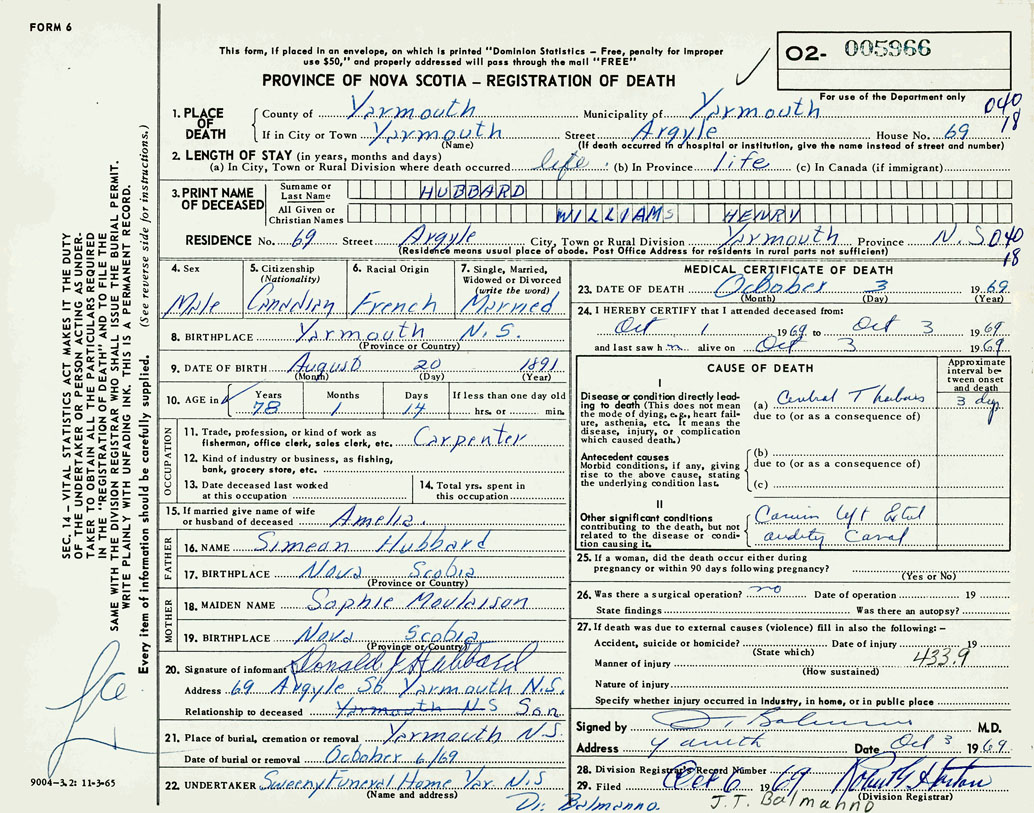 FORM 6
This form, if placed in an envelope, on which is printed "Dominion Statistics – Free, penalty for improper
use $50," and properly addressed will pass through the mail "FREE"
PROVINCE OF NOVA SCOTIA – REGISTRATION OF DEATH
02- 005966
For use of the Department only
040
18
1. PLACE OF DEATH
County of Yarmouth Municipality of Yarmouth
If in City or Town Yarmouth Street Argyle House No. 69
(Name) (If death occurred in a hospital or institution, give the name instead of street and number)
2. LENGTH OF STAY (in years, months and days)
(a) In City, Town or Rural Division where death occurred life (b) In Province life (c) In Canada (if immigrant)
3. PRINT NAME OF DECEASED
Surname or Last Name HUBBARD
All Given or Christian Names WILLIAMS HENRY
RESIDENCE No. 69 Street Argyle City, Town or Rural Division Yarmouth Province N.S 040
18
(Residence means usual place of abode. Post Office Address for residents in rural parts not sufficient)
4. Sex
Male
5. Citizenship (Nationality)
Canadian
6. Racial Origin
French
7. Single, Married, Widowed or Divorced (write the word)
Married
8. BIRTHPLACE Yarmouth N.S.
(Province or Country)
9. DATE OF BIRTH August 20 1891
(Month) (Day) (Year)
10. AGE in Years Months Days If less than one day old
78 1 14 hrs. or min.
OCCUPATION
11. Trade, profession, or kind of work as
fisherman, office clerk, sales clerk, etc. Carpenter
12. Kind of industry or business, as fishing,
bank, grocery store, etc.
13. Date deceased last worked
at this occupation
14. Total yrs. spent in
this occupation
15. If married give name of wife
or husband of deceased Amelia.
FATHER
16. NAME Simean Hubbard
17. BIRTHPLACE Nova Scotia
(Province or Country)
MOTHER
18. MAIDEN NAME Sophie Moulaison
19. BIRTHPLACE Nova Scotia
(Province or Country)
20. Signature of informant Donald J Hubbard
Address 69 Argyle St Yarmouth N.S.
Relationship to deceased Yarmouth N S Son.
21. Place of burial, cremation or removal Yarmouth N S.
Date of burial or removal October 6/69
22. UNDERTAKER Sweeny Funeral Home Yar. N.S
(Name and address)
Dr. Balmanno.
MEDICAL CERTIFICATE OF DEATH
23. DATE OF DEATH October 3 1969.
(Month) (Day) (Year)
24. I HEREBY CERTIFY that I attended deceased from:
Oct 1 1969 to Oct 3 1969
and last saw him alive on Oct 3 1969
CAUSE OF DEATH
Approximate interval between onset and death
I
Disease or condition directly leading
to death (This does not mean
the mode of dying, e.g., heart failure,
asthenia, etc. It means the
disease, injury, or complication
which caused death.)
(a) 3
due to (or as a consequence of)
Antecedent causes
Morbid conditions, if any, giving
rise to the above cause, stating
the underlying condition last.
(b)
due to (or as a consequence of)
(c)
II
Other significant conditions
contributing to the death, but not
related to the disease or condition
causing it.
left
auditory Canal
25. If a woman, did the death occur either during
pregnancy or within 90 days following pregnancy?
(Yes or No)
26. Was there a surgical operation? no Date of operation 19
State findings Was there an autopsy?
27. If death was due to external causes (violence) fill in also the following: –
Accident, suicide or homicide? Date of injury 19
(State which) 433.9
Manner of injury
(How sustained)
Nature of injury
Specify whether injury occurred in Industry, in home, or in public place
Signed by J. T. Balmanno M.D.
Address Date Oct 3 1969.
28. Division Registrar's Record Number
29. Filed Oct 6 1969
(Division Registrar)
J.T. Balmanno
SEC. 14 – VITAL STATISTICS ACT MAKES IT THE DUTY
OF THE UNDERTAKER OR PERSON ACTING AS UNDER-
TAKER TO OBTAIN ALL THE PARTICULARS REQUIRED
IN THE "REGISTRATION OF DEATH" AND TO FILE THE
SAME WITH THE DIVISION REGISTRAR WHO SHALL ISSUE THE BURIAL PERMIT.
WRITE PLAINLY WITH UNFADING INK. THIS IS A PERMANENT RECORD.
Every item of information should be carefully supplied. (See reverse side for instructions.)
9004–3.2: 11-3-65